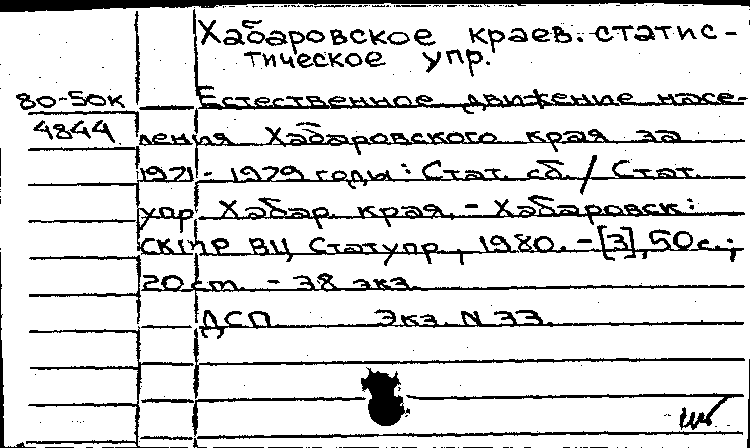 Хабаровское краев. статис-
тическое упр.
80-50к
4844
Естественное движение насе-
ления Хабаровского края за
1971 - 1979 годы: Стат. сб. / Стат.
упр. Хабар. края. - Хабаровск:
СКПР ВЦ Статупр., 1980. - [3], 50 с.;
20 см. - 38 экз.
ДСП Экз. N 33.